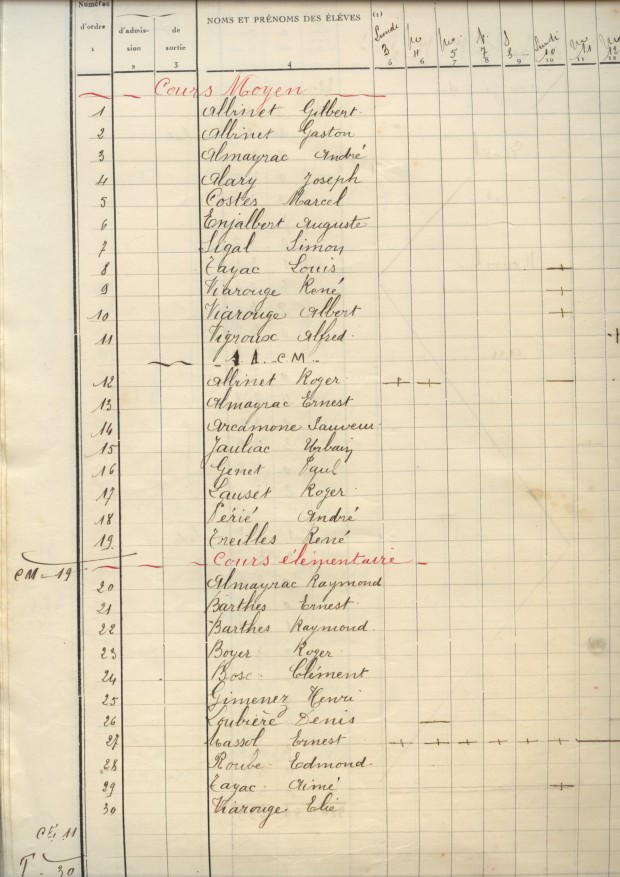 Numéros
d'ordre d'admission de sortie NOMS ET PRÉNOMS DES ÉLÈVES (1) Lundi
3 4 5 7 10 11 12
1 2 3 4 5 6 7 8 9 10 11 12
Cours Moyen
1 Albinet Gilbert
2 Albinet Gaston
3 Almayrac André
4 Alary Joseph
5 Costes Marcel
6 Enjalbert Auguste
7 Sigal Simon
8 Tayac Louis
9 Viarouge René
10 Viarouge Albert
11 Vigroux Alfred
CM
12 Albinet Roger
13 Almayrac Ernest
14 Arcamone Sauveur
15 Jauliac Urbain
16 Genet Paul
17 Lauset Roger
18 Périé André
19 Treilles René
CM - 19 Cours élémentaire
20 Almayrac Raymond
21 Barthes Ernest
22 Barthes Raymond
23 Boyer Roger
24 Bosc Clément
25 Gimenez Henri
26 Loubière Denis
27 Massol Ernest
28 Roube Edmond
29 Tayac Aimé
30 Viarouge Elie
CE 11
T - 30